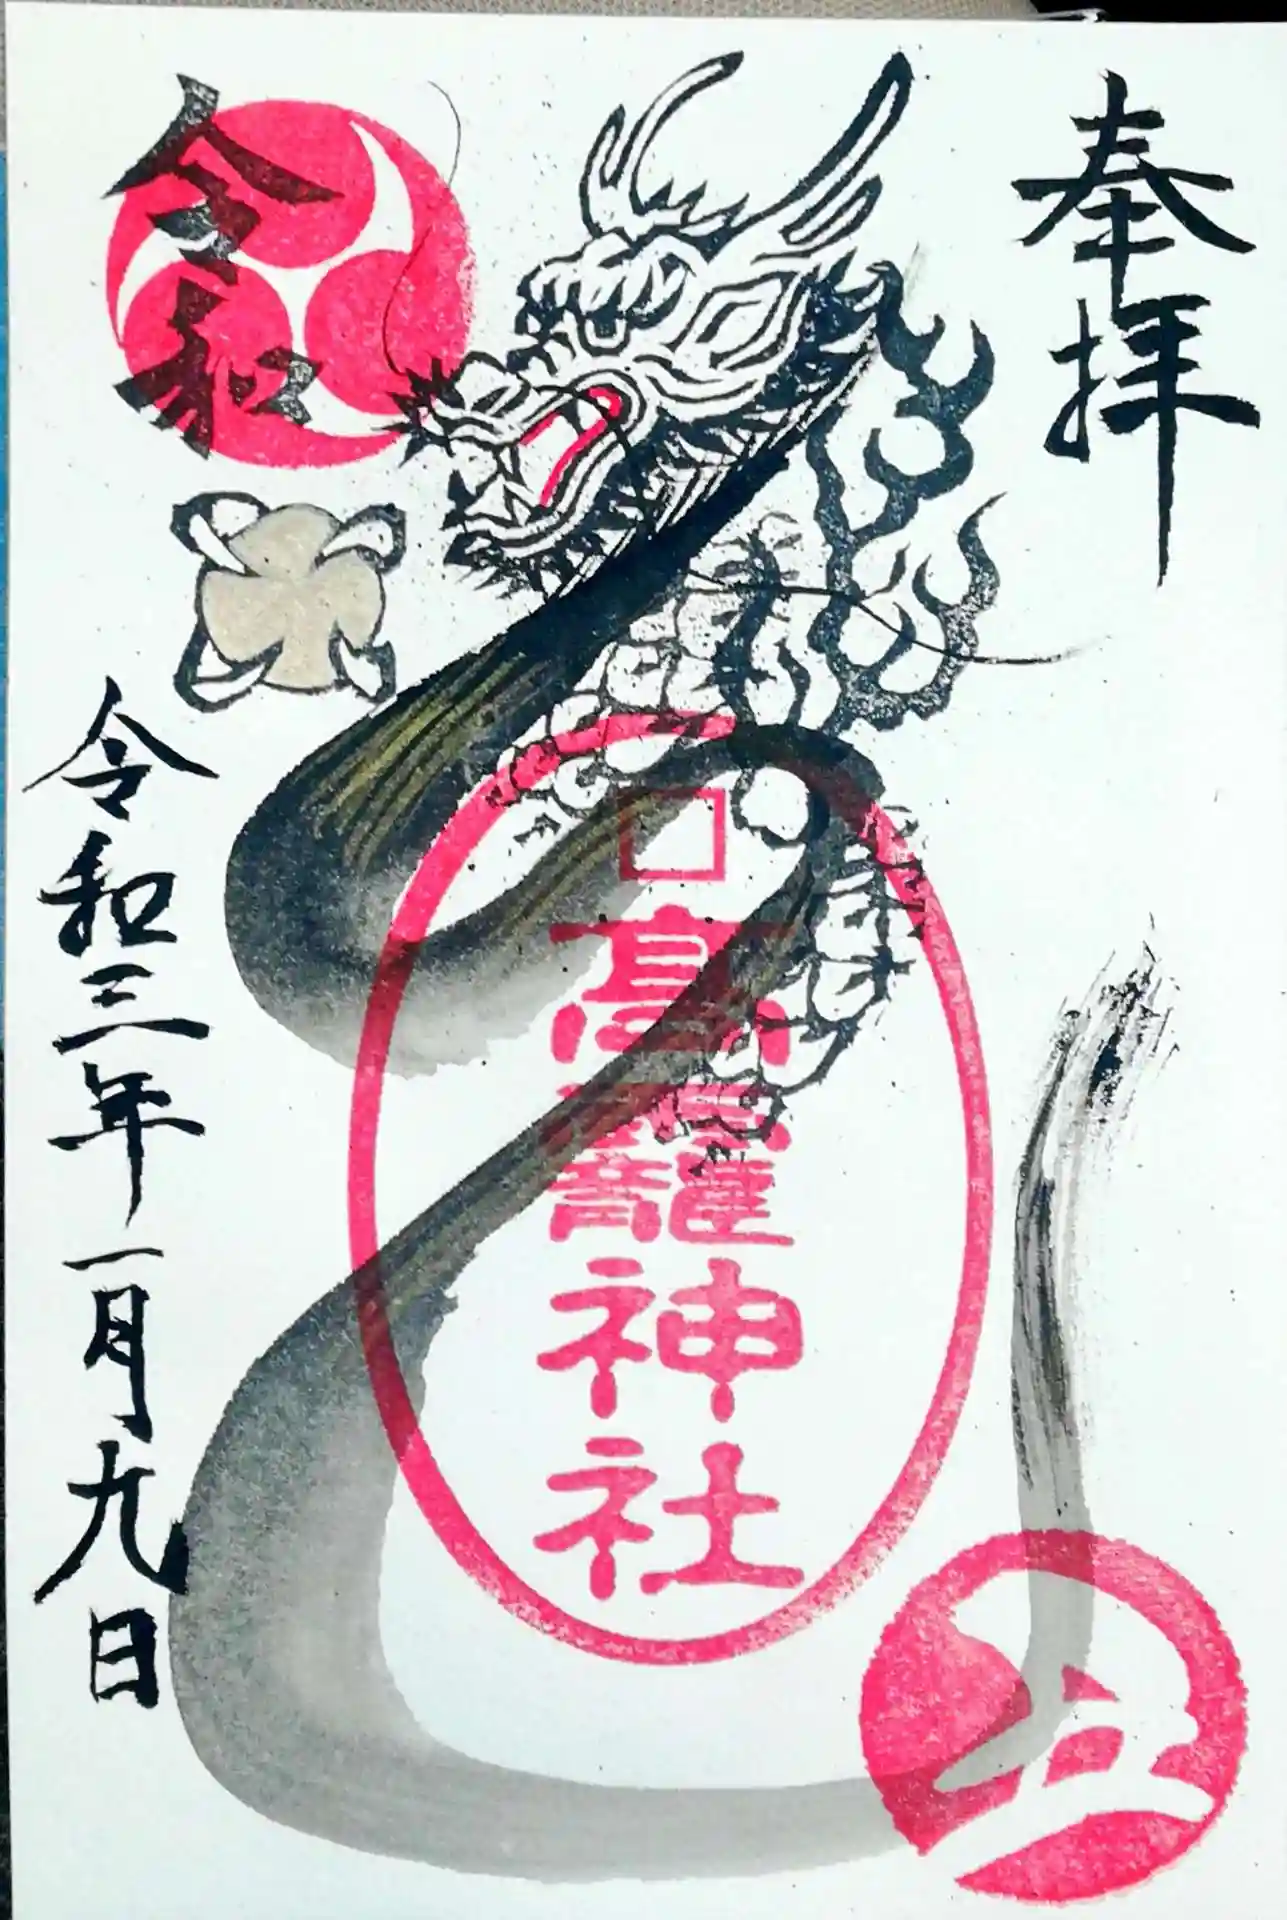 奉拝
高龗神社
令和
令和三年一月九日